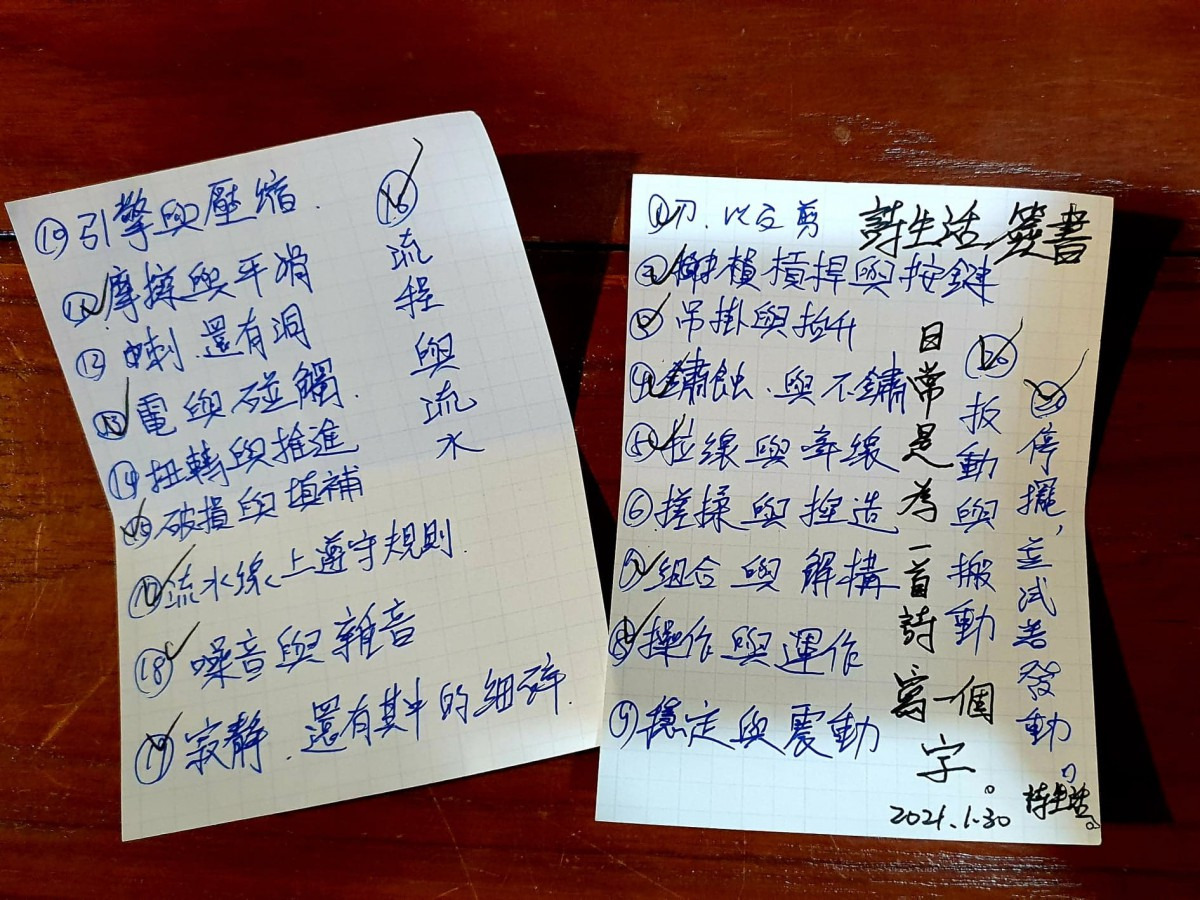 ⑩引擎與壓縮.
⑪摩擦與平滑
⑫喇刺.還有洞
⑬電與碰觸.
⑭扭轉與推進
⑮破損與填補
⑯流程與流水
⑰流水線上遵守規則.
⑱噪音與雜音
⑲寂靜.還有其中的細碎.
詩生活 簽書
①刀.以及剪
②槓桿與按鍵
③吊掛與抬升
④鏽蝕、與不鏽
⑤拉線與牽線
⑥搓揉與捏造
⑦組合與解構
⑧操作與運作
⑨穩定與震動
⑳扳動與搬動
停擺,並試著發動。
日常是為一首詩寫一個字。
2021.1.30
詩生活。